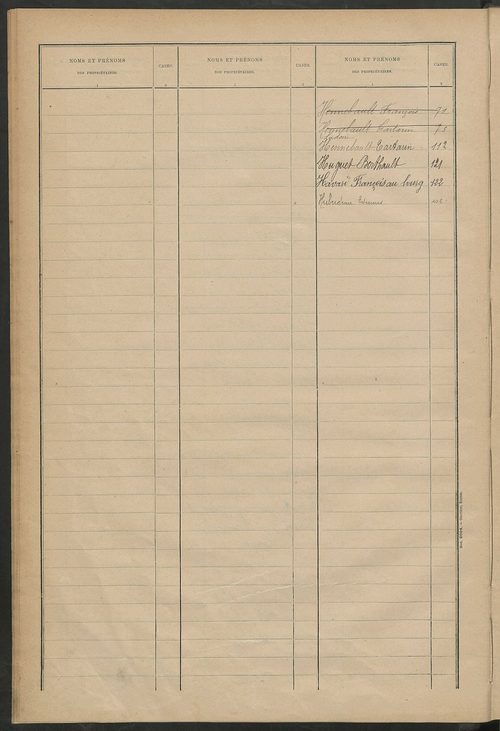 NOMS ET PRÉNOMS
DES PROPRIÉTAIRES.
1
CASES.
2
NOMS ET PRÉNOMS
DES PROPRIÉTAIRES.
1
CASES.
2
NOMS ET PRÉNOMS
DES PROPRIÉTAIRES.
1
CASES.
2
Hennebault François 71
Hennebault Tartarin 75
Hennebault Tartarin 112
Huguet Berthault 121
Havard François au bourg 122